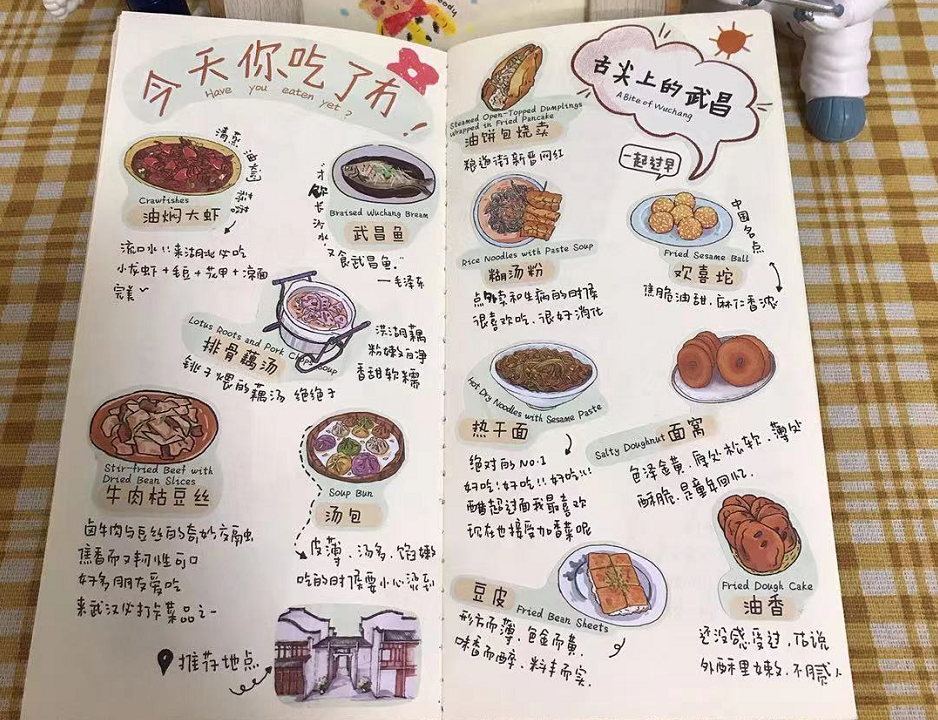 今天你吃了冇!
Have you eaten yet?
清蒸 油焖
蒜蓉
Crawfishes
油焖大虾
流口水!!来湖北必吃
小龙虾+毛豆+花甲+凉面
完美
"才饮长沙水
Braised Wuchang Bream
武昌鱼
又食武昌鱼."
—毛泽东
Lotus Roots and Pork Chops Soup
排骨藕汤
铫子煨的藕汤 绝绝子
洪湖藕
粉嫩白净
香甜软糯
Stir-fried Beef with
Dried Bean Slices
牛肉枯豆丝
卤牛肉与豆丝的奇妙交融
焦香而又韧性可口
好多朋友爱吃
来武汉必打卡菜品之一
Soup Bun
汤包
皮薄、汤多、馅嫩
吃的时候要小心烫到
推荐地点
舌尖上的武昌
A Bite of Wuchang
一起过早
Steamed Open-Topped Dumplings
Wrapped in Fried Pancake
油饼包烧卖
粮道街新晋网红
Rice Noodles with Paste Soup
糊汤粉
点外卖和生病的时候
很喜欢吃、很好消化
中国名点
Fried Sesame Ball
欢喜坨
焦脆油甜,麻仁香浓
Hot Dry Noodles with Sesame Paste
热干面
绝对的 No.1
好吃!好吃!!好吃!!!
醋超过面我最喜欢
现在也接受加香菜呢
Salty Doughnut 面窝
色泽金黄、厚处松软、薄处
酥脆.是童年回忆.
豆皮
Fried Bean Sheets
形方而薄,色金而黄.
味香而醇,料丰而实.
Fried Dough Cake
油香
还没感受过,估说
外酥里嫩,不腻